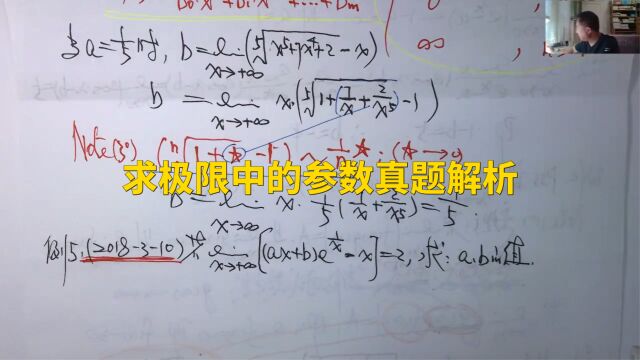 当a=1/5时, b=lim x→+∞ (⁵√(x⁵+7x⁴+2)-x)
b = lim x→+∞ x·(⁵√(1+7/x+2/x⁵)-1)
Note(3°) (ⁿ√(1+☆)-1) ~ 1/n ☆·(☆→0)
求极限中的参数真题解析
b = lim x→∞ x·1/5(7/x+2/x⁵)=7/5.
例5.(2018-3-10) lim x→+∞ [(ax+b)e^(1/x)-x]=2, 求:a.b的值.